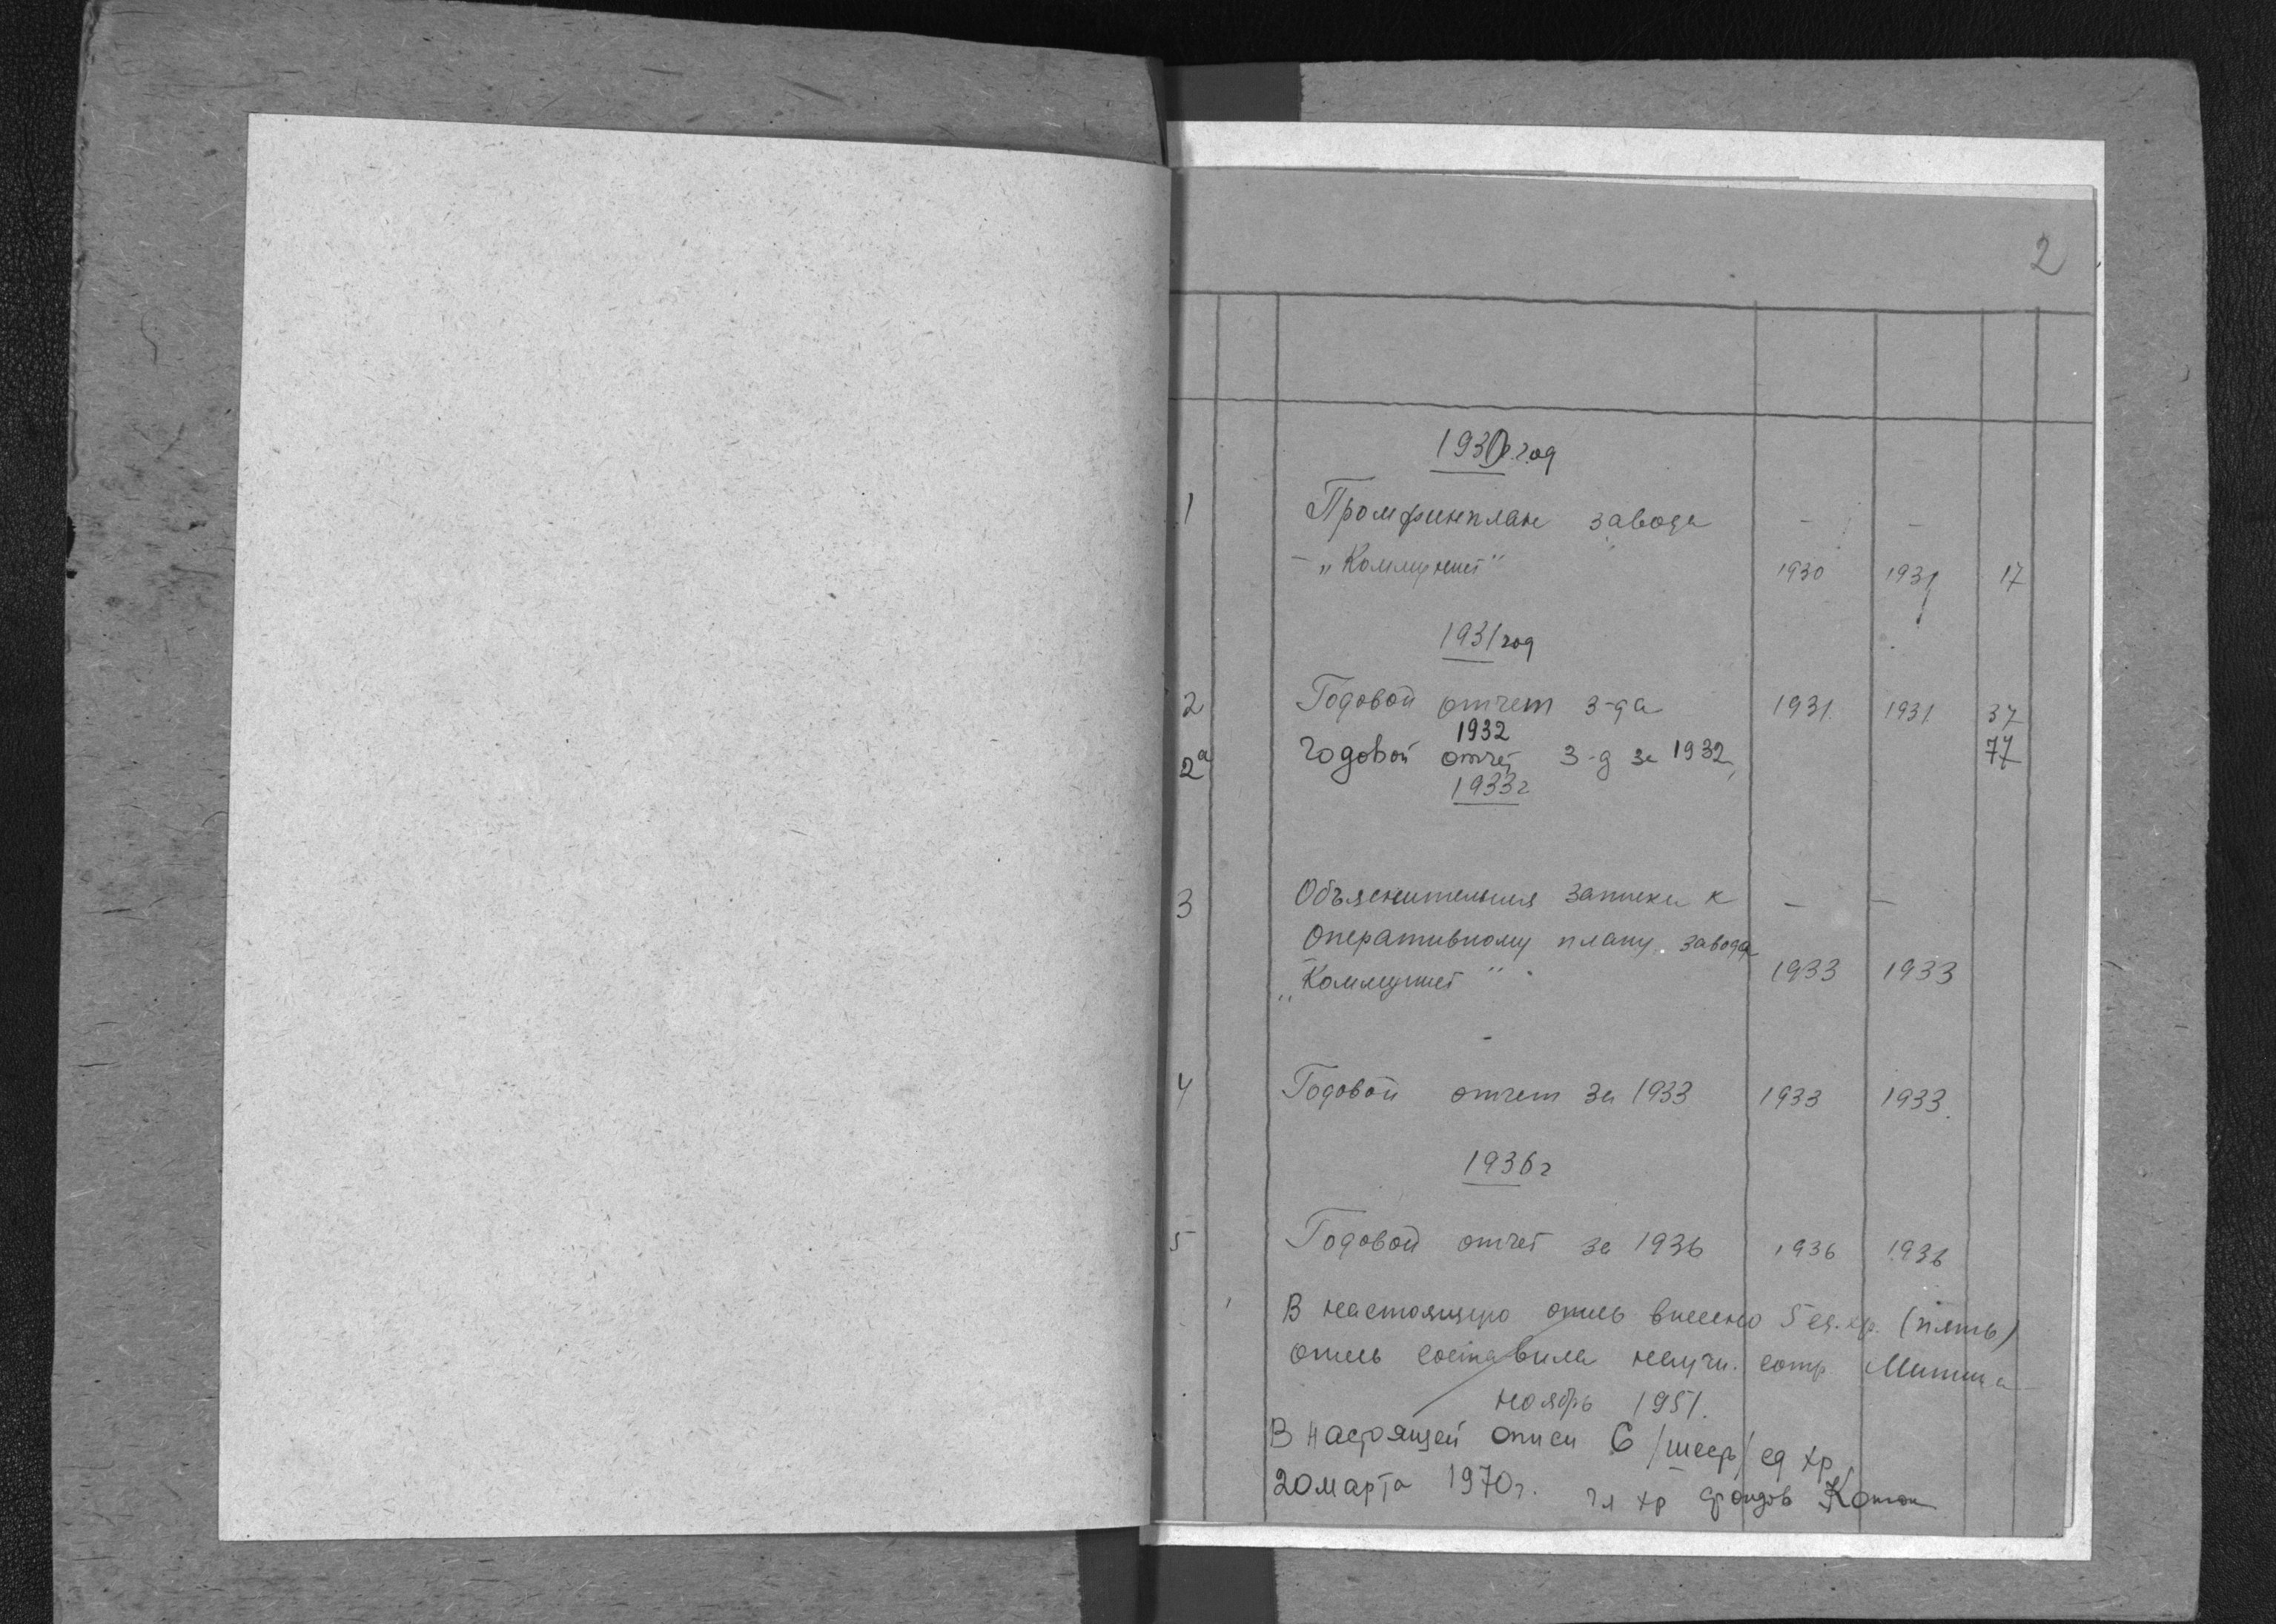 2
1930 год
1 Промфинплан завода - -
„Коммунист" 1930 1931 17
1931 год
2 Годовой отчет з-да 1931. 1931. 37
1932
2а Годовой отчет з-д за 1932 77
1933г
3 Объяснительная записка к - -
Оперативному плану завода
„Коммунист" 1933 1933
4 Годовой отчет за 1933 1933 1933.
1936г
5 Годовой отчет за 1936 1936 1936
В настоящую опись внесено 5 ед. хр. (пять)
Опись составила научн. сотр.
ноябрь 1951.
В настоящей описи 6 /шесть/ ед хр
20 марта 1970г. гл хр фондов